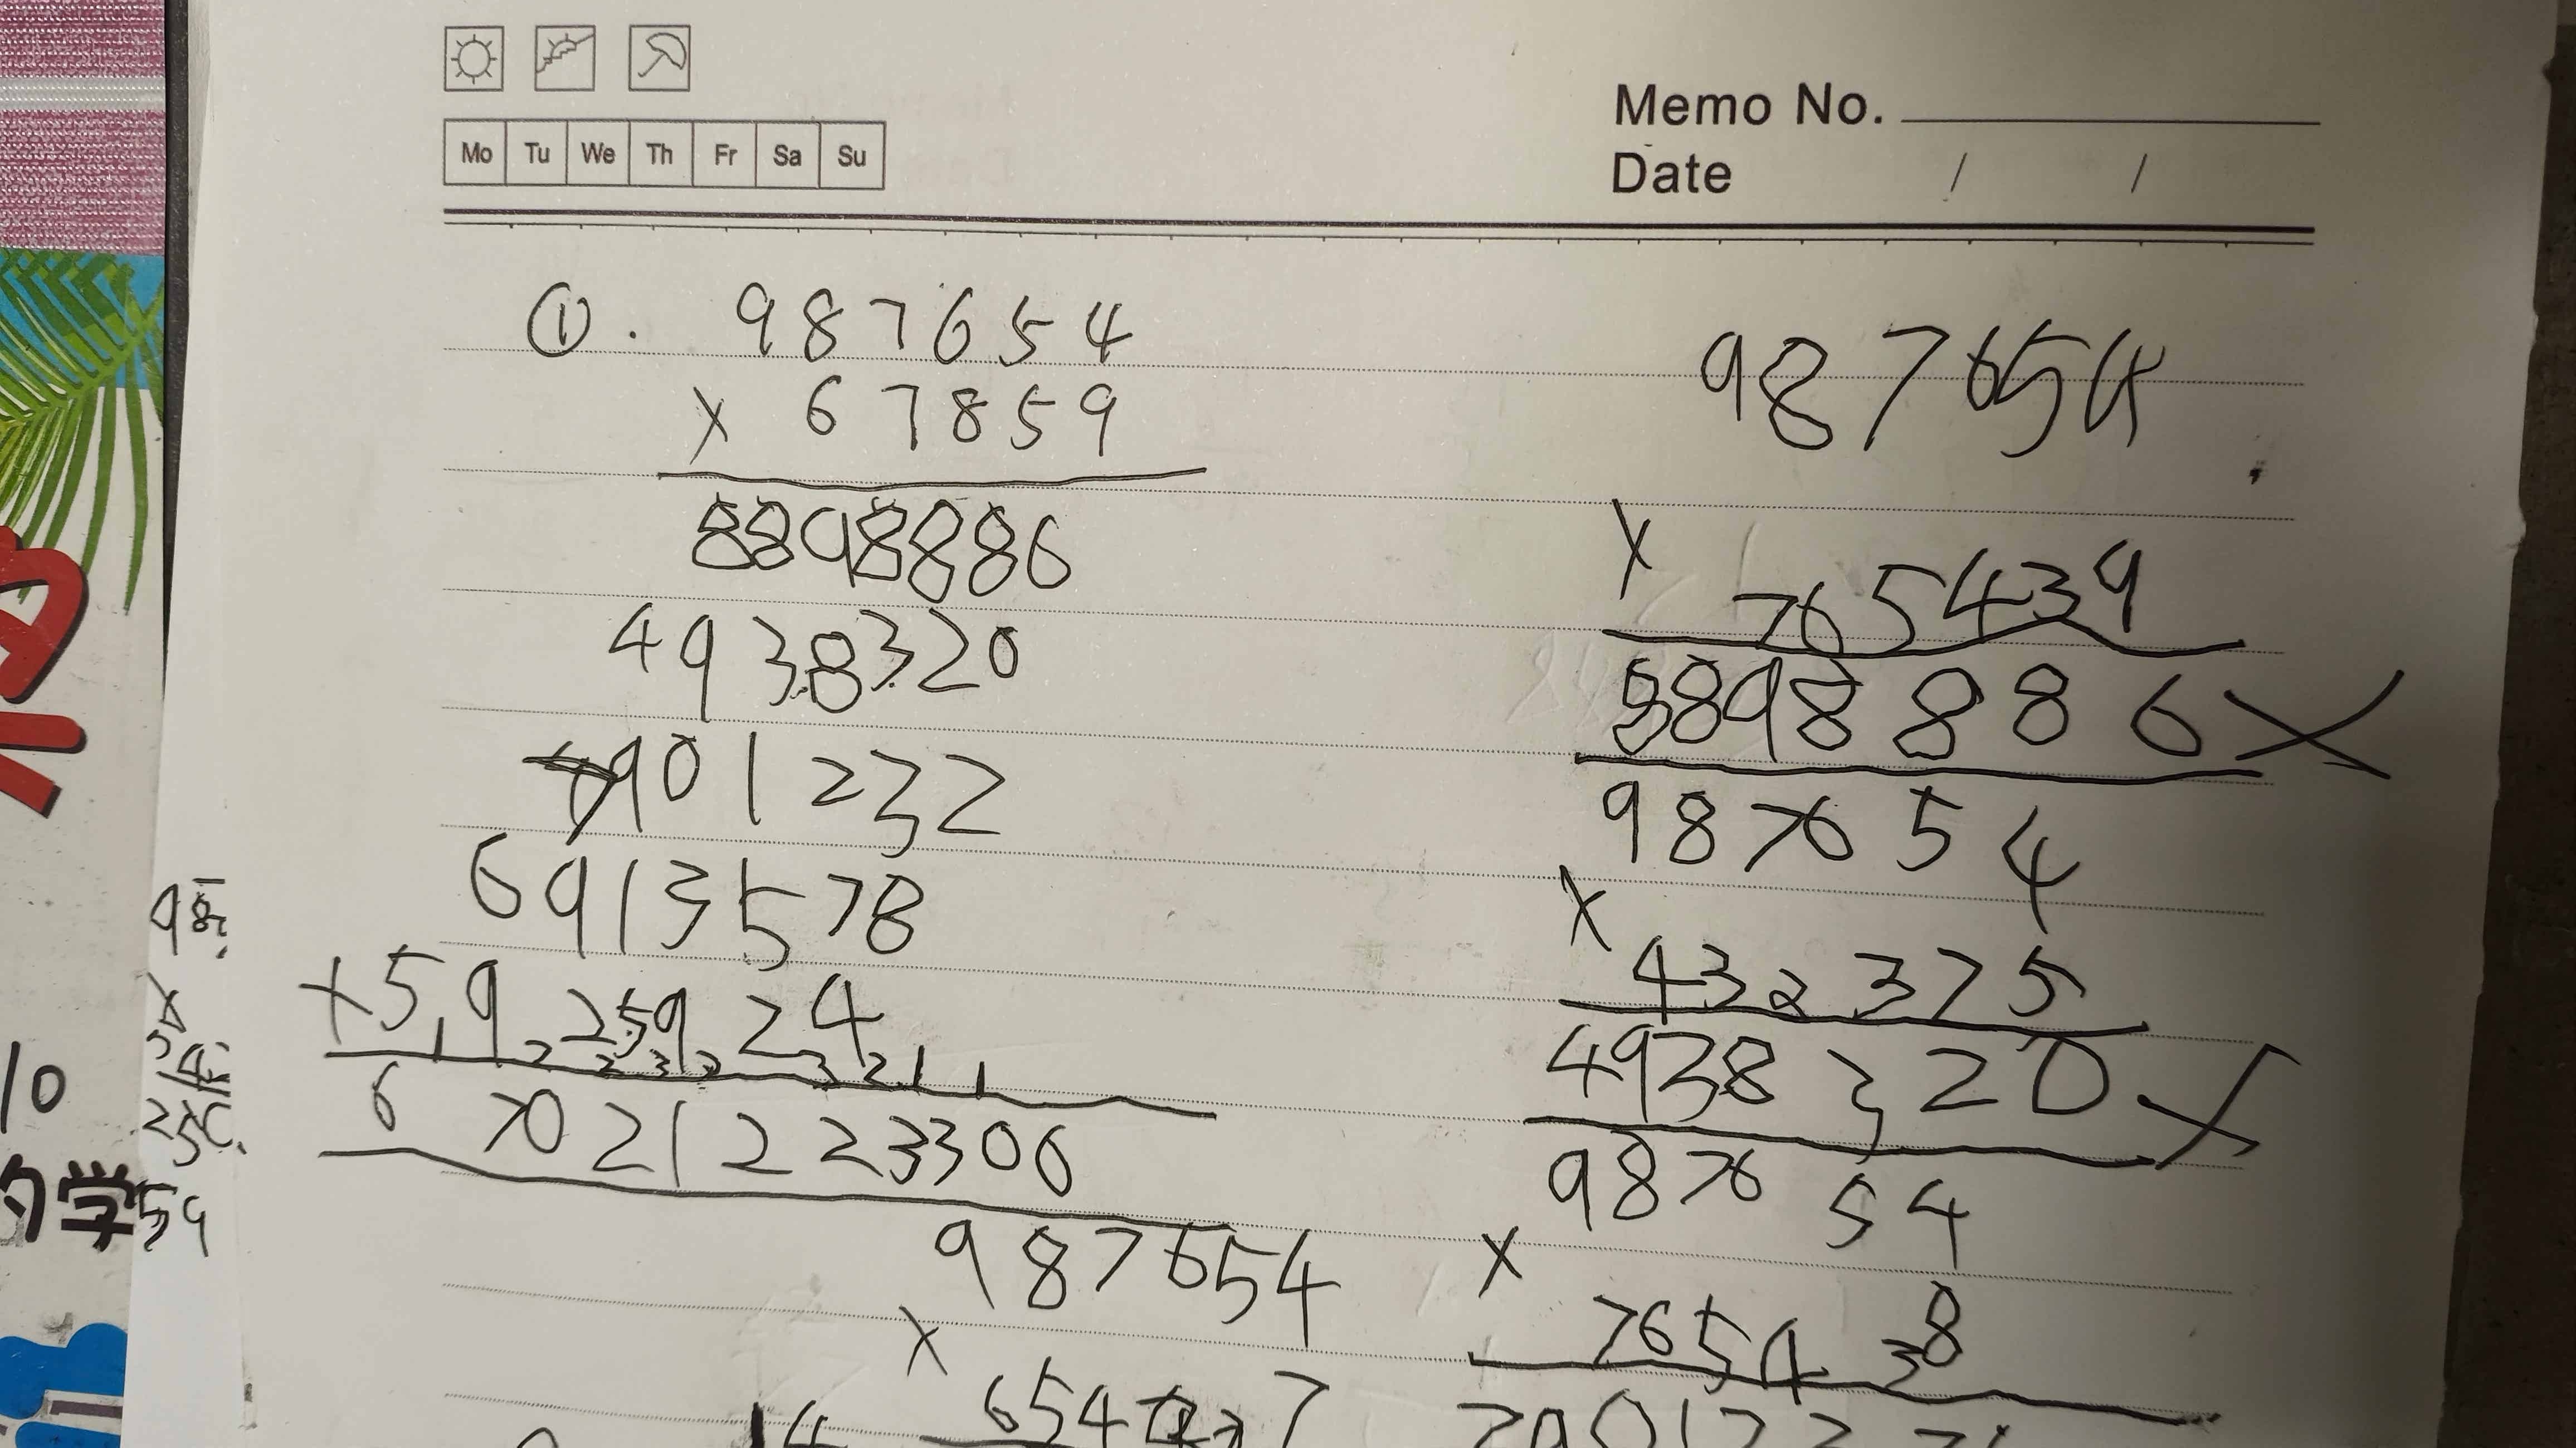 Mo Tu We Th Fr Sa Su
Memo No.
Date / /
① . 987654
× 67859
8898886
4938320
7901232
6913578
+5925924
1 2 2 3 2 3 2 1 1
67021223306
987654
×
7
987654
× 765439
8898886 ×
987654
× 432375
4938320 ×
987654
× 765438
98
59
10
夕学